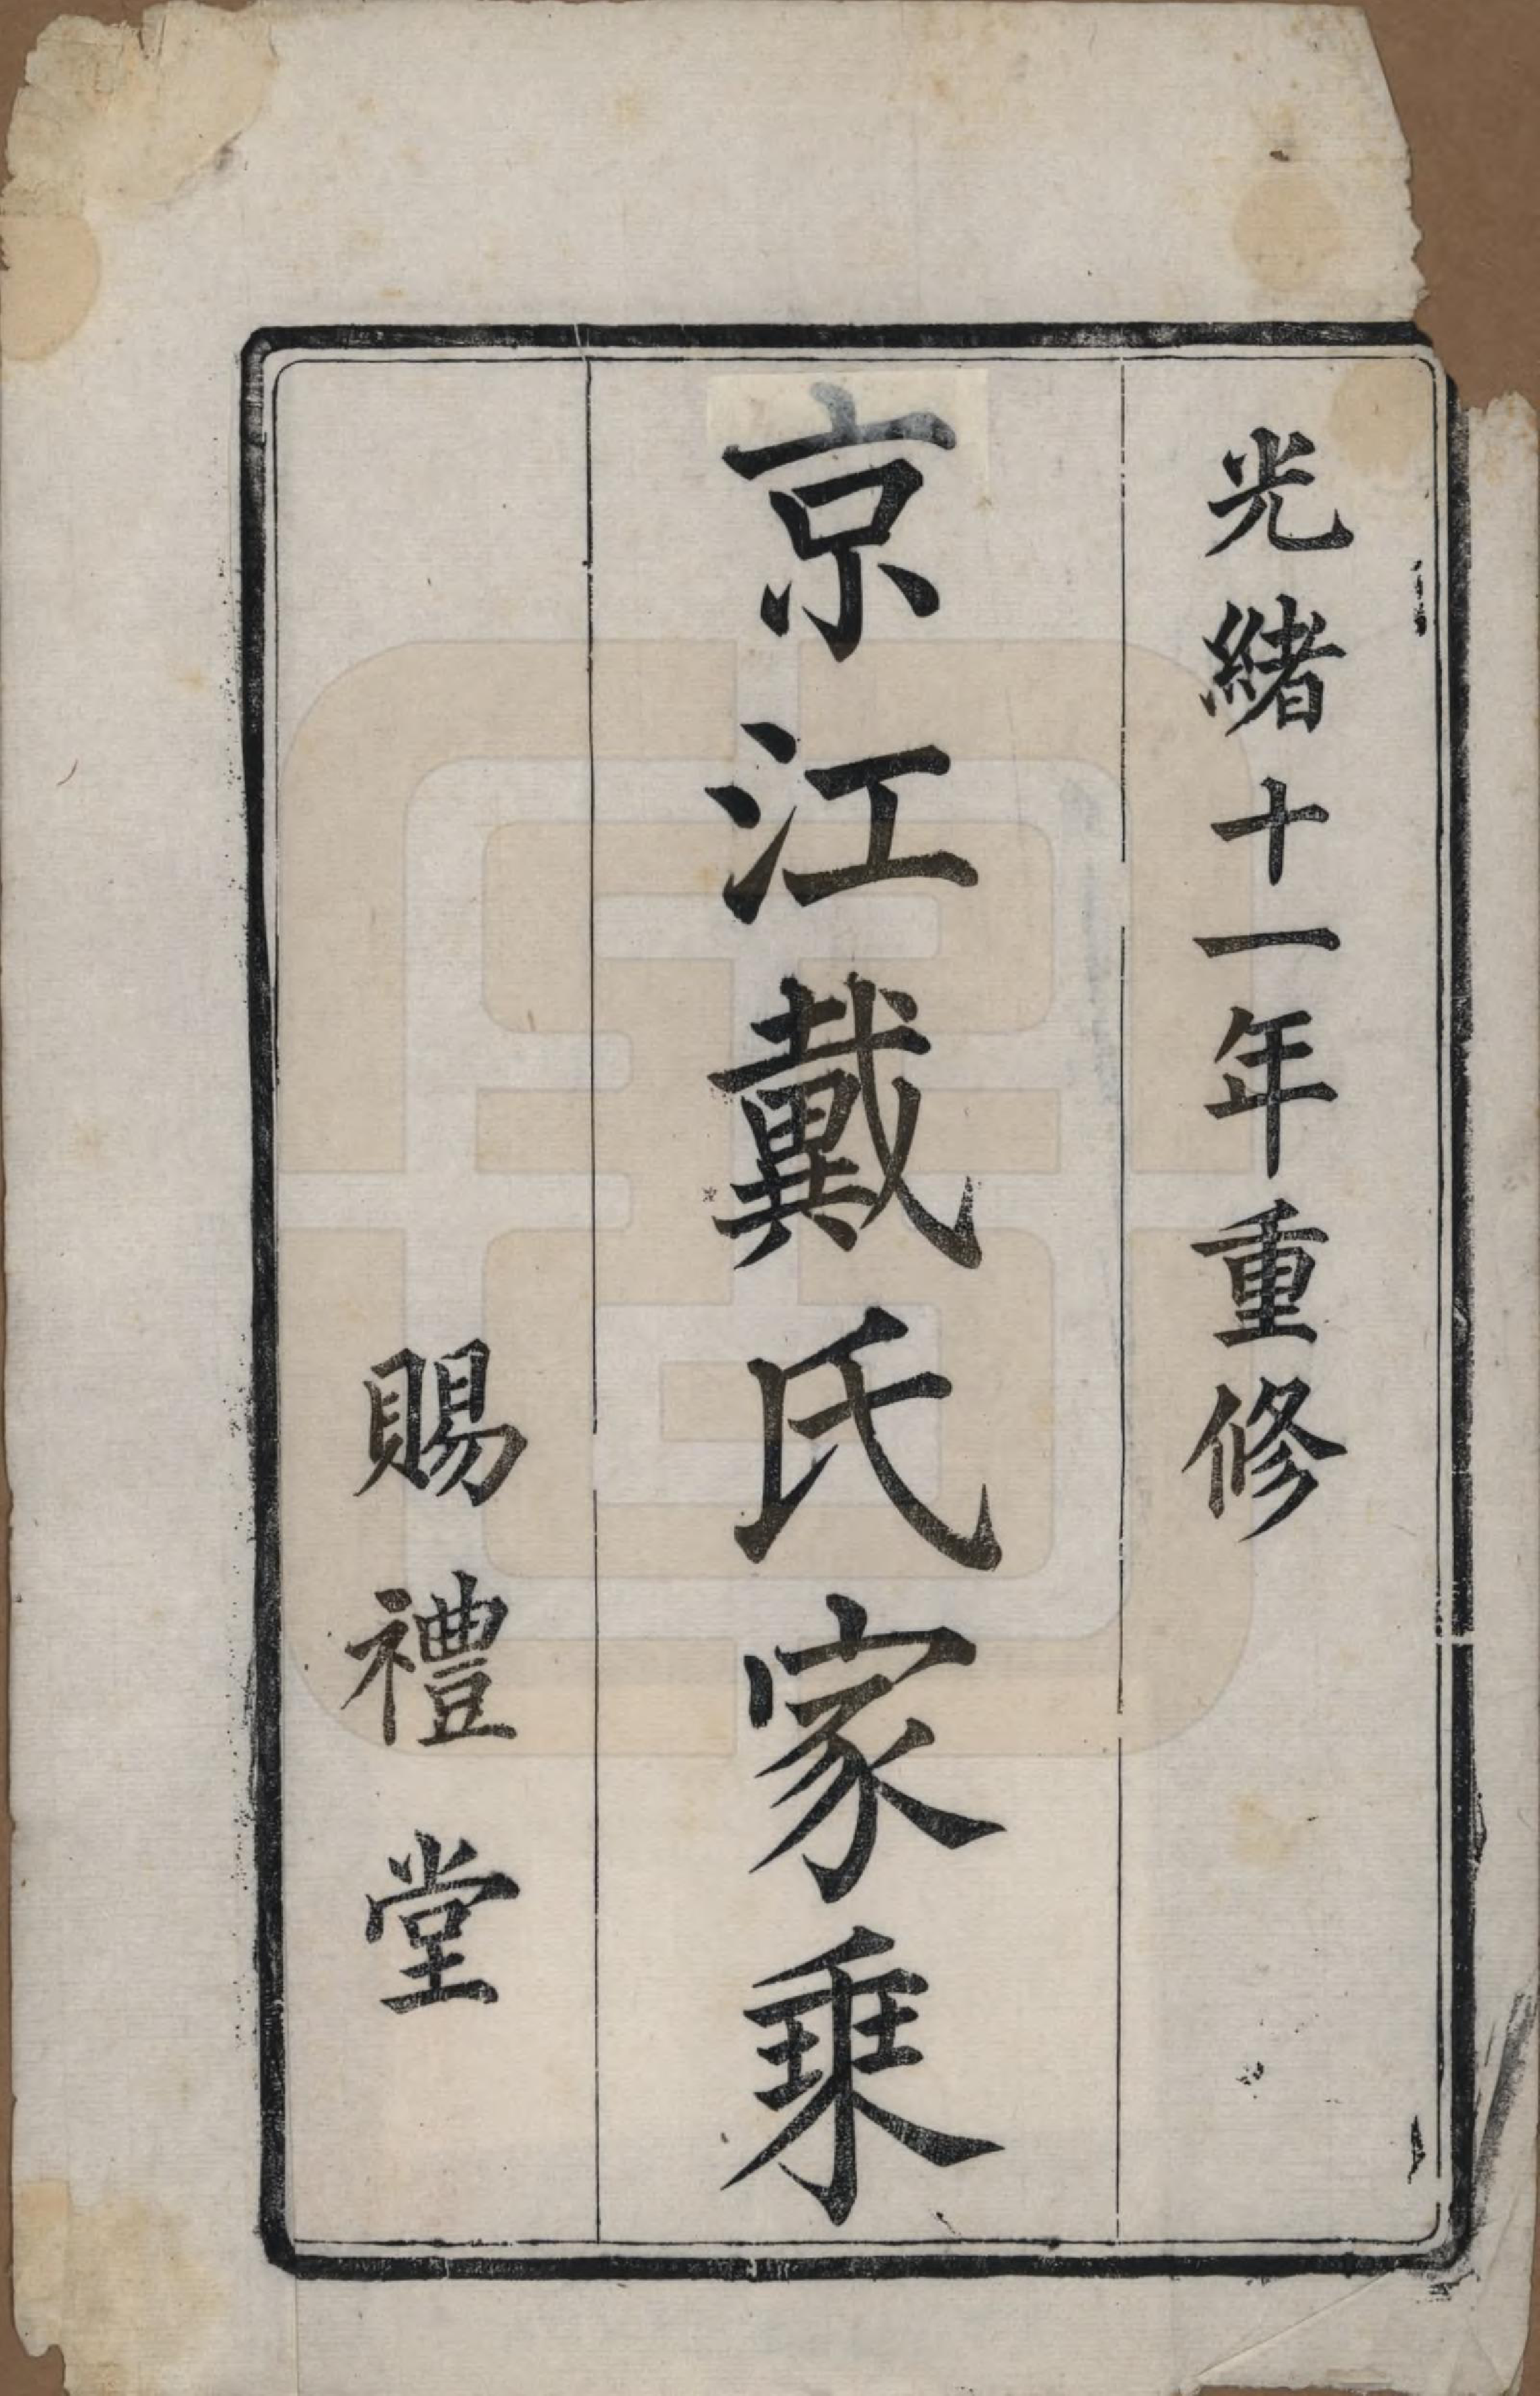 光緒十一年重修
京江戴氏家乗
賜禮堂